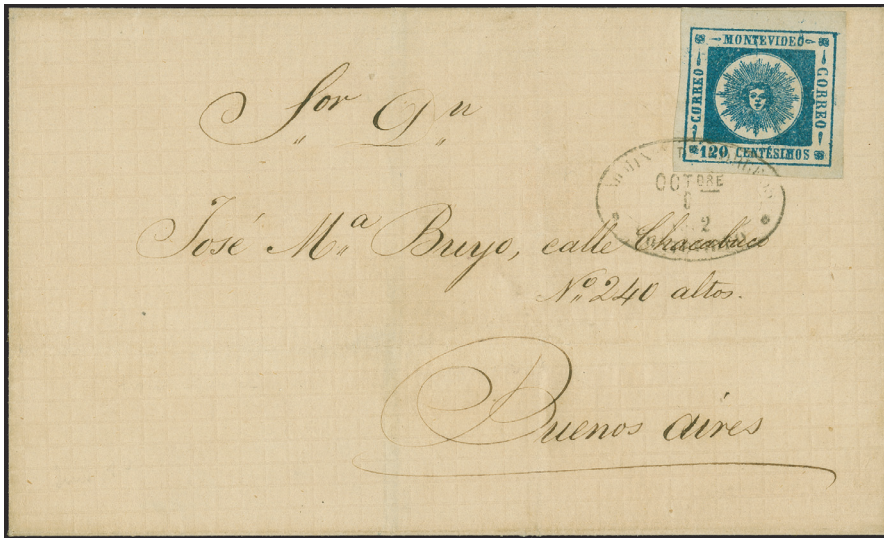 MONTEVIDEO
CORREO
CORREO
120 CENTÉSIMOS
OCTBRE
2
Sor Dn
José Ma Buyo, calle Chacabuco
No 240 altos.
Buenos aires